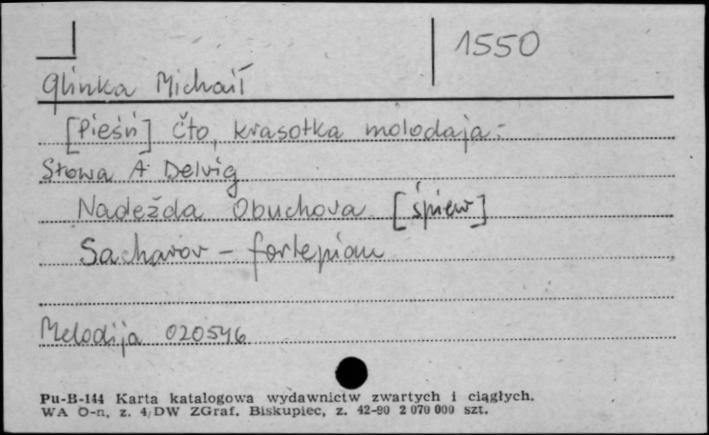 1550
Glinka Michaił
[Pieśń] Čto, krasotka molodaja:
Słowa A. Delvig
Nadežda Obuchova [śpiew]
Sacharov - fortepian
Melodija 020546
Pu-B-144 Karta katalogowa wydawnictw zwartych i ciągłych.
WA O-n, z. 4/DW ZGraf. Biskupiec, z. 42-80 2 070 000 szt.